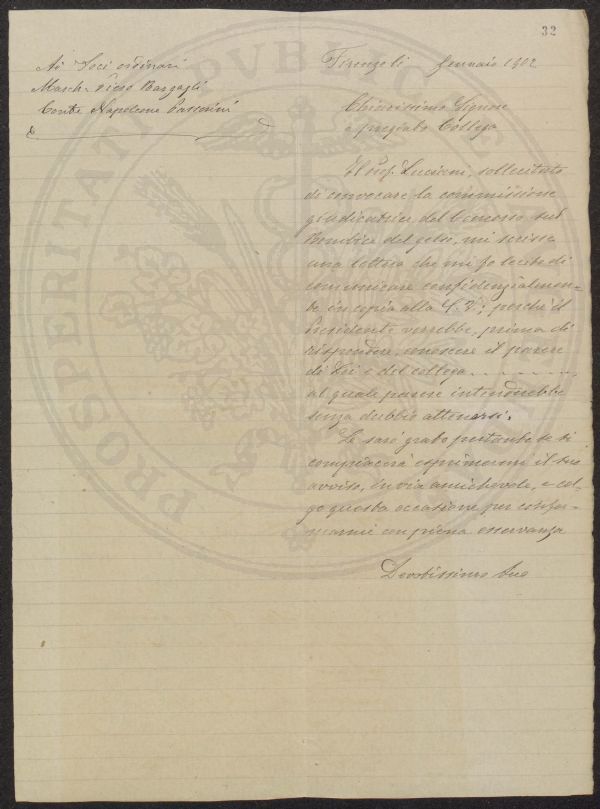 32
Ai Soci ordinari
March. Piero Bargagli
Conte Napoleone Passerini
Firenze li Gennaio 1902
Chiarissimo Signore
e pregiato Collega
Il Prof. Luciani, sollecitato
di convocare la commissione
giudicatrice del Concorso sul
Bombice del gelso, mi scrisse
una lettera che mi fo lecito di
comunicare confidenzialmen-
te in copia alla S. V.; perchè il
Presidente vorrebbe, prima di
rispondere, conoscere il parere
di Lei e del collega . . . . . . . .
al quale parere intenderebbe
senza dubbio attenersi.
Le sarò grato pertanto se si
compiacerà esprimermi il suo
avviso, in via amichevole, e col-
go questa occasione per confer-
marmi con piena osservanza
Devotissimo Suo
PROSPERITATI PUBLICAE